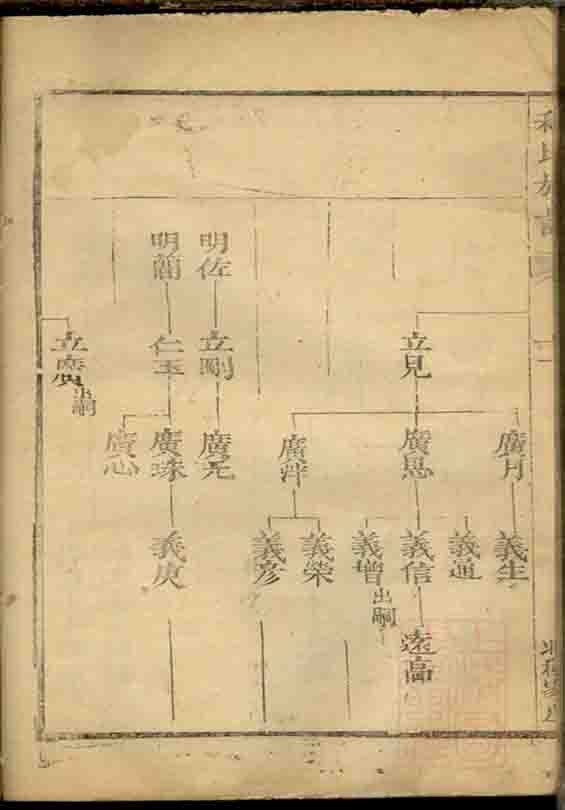 氏族譜
立見
廣月
廣恩
廣泮
義生
義通
義信
義增
出嗣
義榮
義彦
遠高
明佐
立剛
廣元
明蘭
仁玉
廣珠
廣心
義庚
立應
出嗣